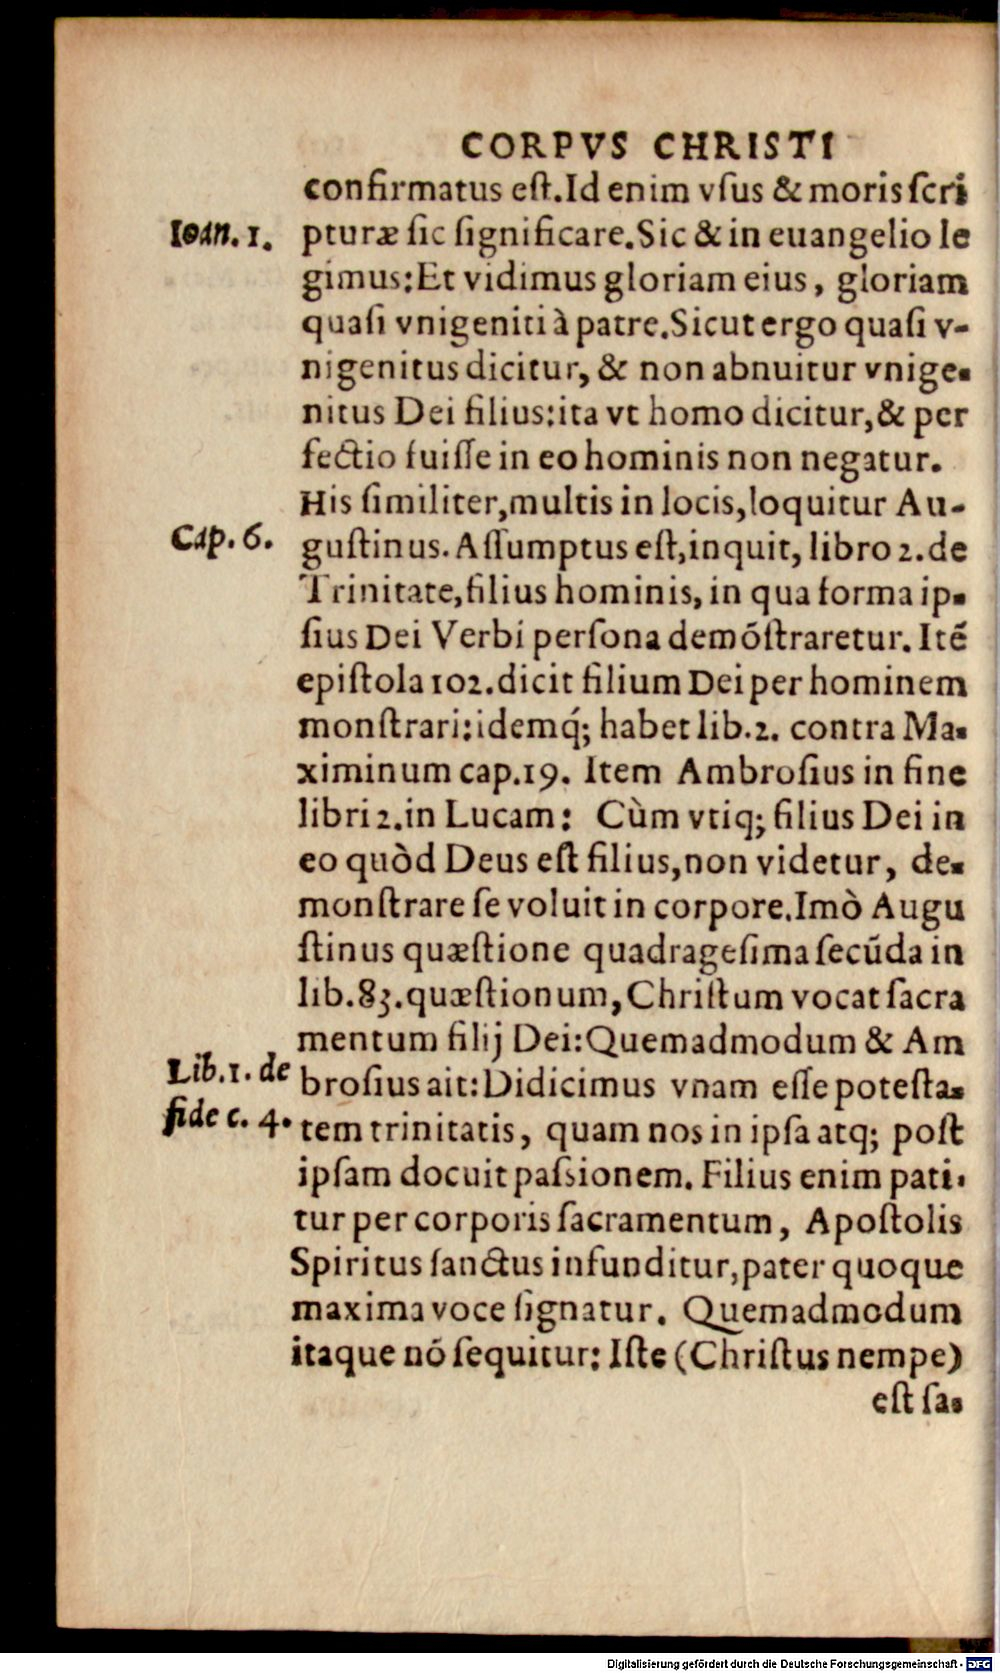 CORPVS CHRISTI
confirmatus eſt.Id enim vſus & moris ſcri
Ioan. 1.
pturæ ſic ſignificare.Sic & in euangelio le
gimus:Et vidimus gloriam eius, gloriam
quaſi vnigeniti à patre.Sicut ergo quaſi v-
nigenitus dicitur, & non abnuitur vnige-
nitus Dei filius:ita vt homo dicitur,& per
fectio fuiſſe in eo hominis non negatur.
His ſimiliter,multis in locis,loquitur Au-
Cap. 6.
guſtinus. Aſſumptus eſt,inquit, libro 2.de
Trinitate,filius hominis, in qua forma ip-
ſius Dei Verbi perſona demōſtraretur. Itē
epiſtola 102.dicit filium Dei per hominem
monſtrari:idemq́; habet lib.2. contra Ma-
ximinum cap.19. Item Ambroſius in fine
libri 2.in Lucam: Cùm vtiq; filius Dei in
eo quòd Deus eſt filius,non videtur, de-
monſtrare ſe voluit in corpore.Imò Augu
ſtinus quæſtione quadrageſima ſecūda in
lib.83.quæſtionum,Chriſtum vocat ſacra
mentum filij Dei:Quemadmodum & Am
Lib.1. de
broſius ait:Didicimus vnam eſſe poteſta-
fide c. 4.
tem trinitatis, quam nos in ipſa atq; poſt
ipſam docuit paſsionem. Filius enim pati-
tur per corporis ſacramentum, Apoſtolis
Spiritus ſanctus infunditur,pater quoque
maxima voce ſignatur. Quemadmodum
itaque nō ſequitur: Iſte (Chriſtus nempe)
eſt ſa-
Digitalisierung gefördert durch die Deutsche Forschungsgemeinschaft - DFG